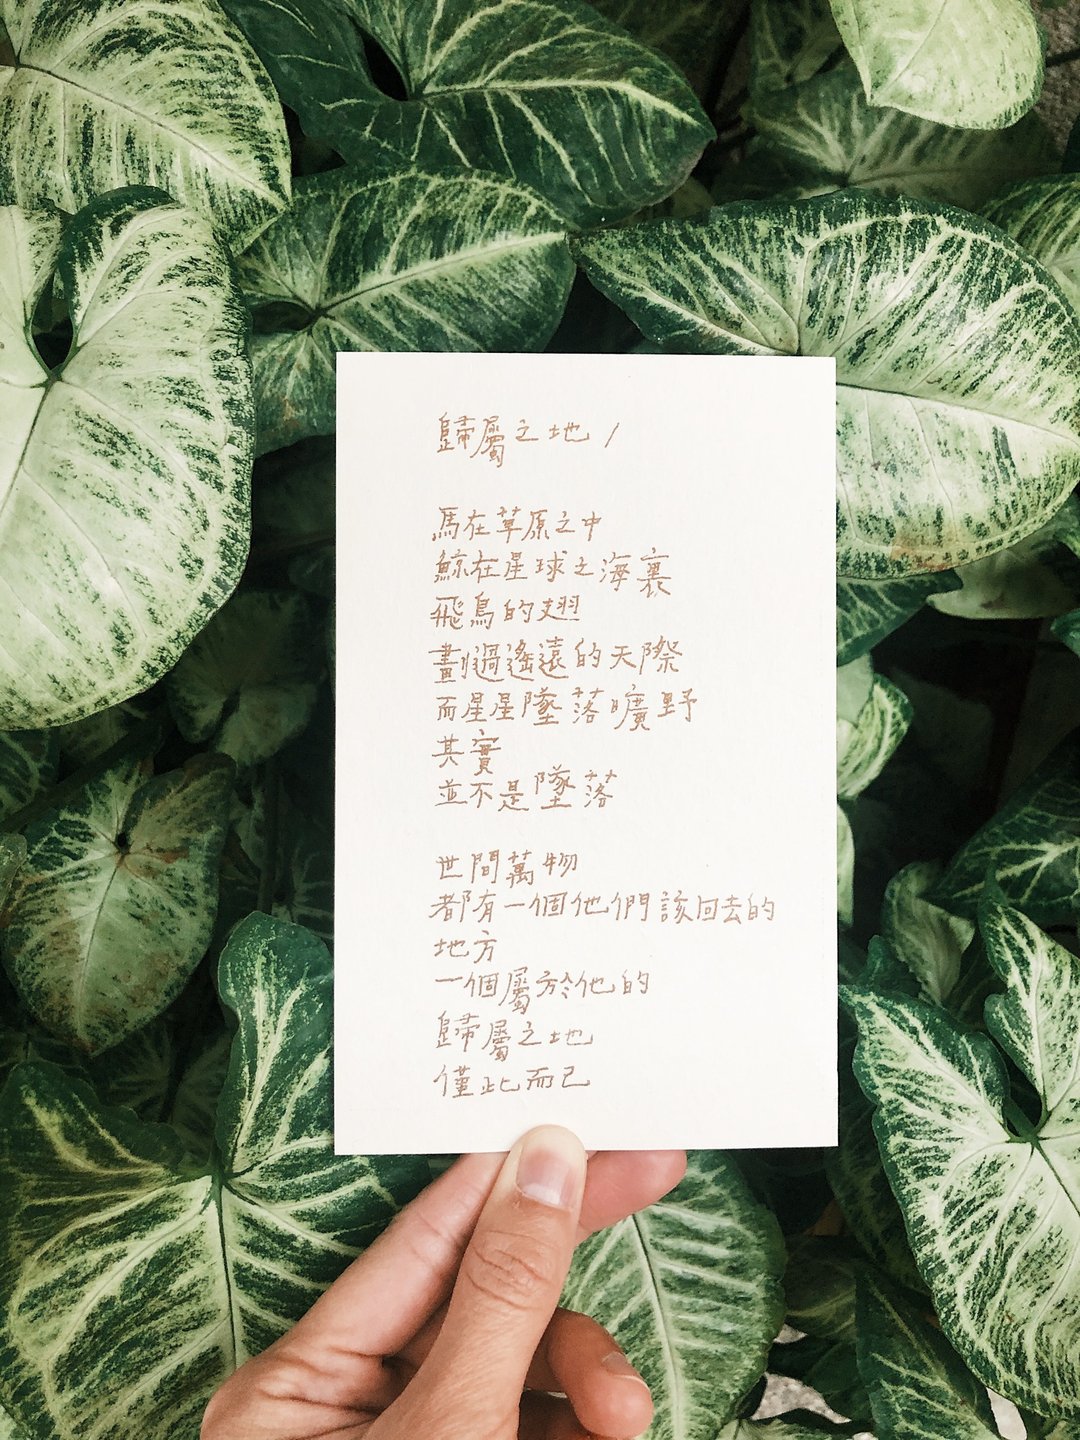 歸屬之地/
馬在草原之中
鯨在星球之海裏
飛鳥的翅
劃過遙遠的天際
而星星墜落曠野
其實
並不是墜落
世間萬物
都有一個他們該回去的
地方
一個屬於他的
歸屬之地
僅此而已